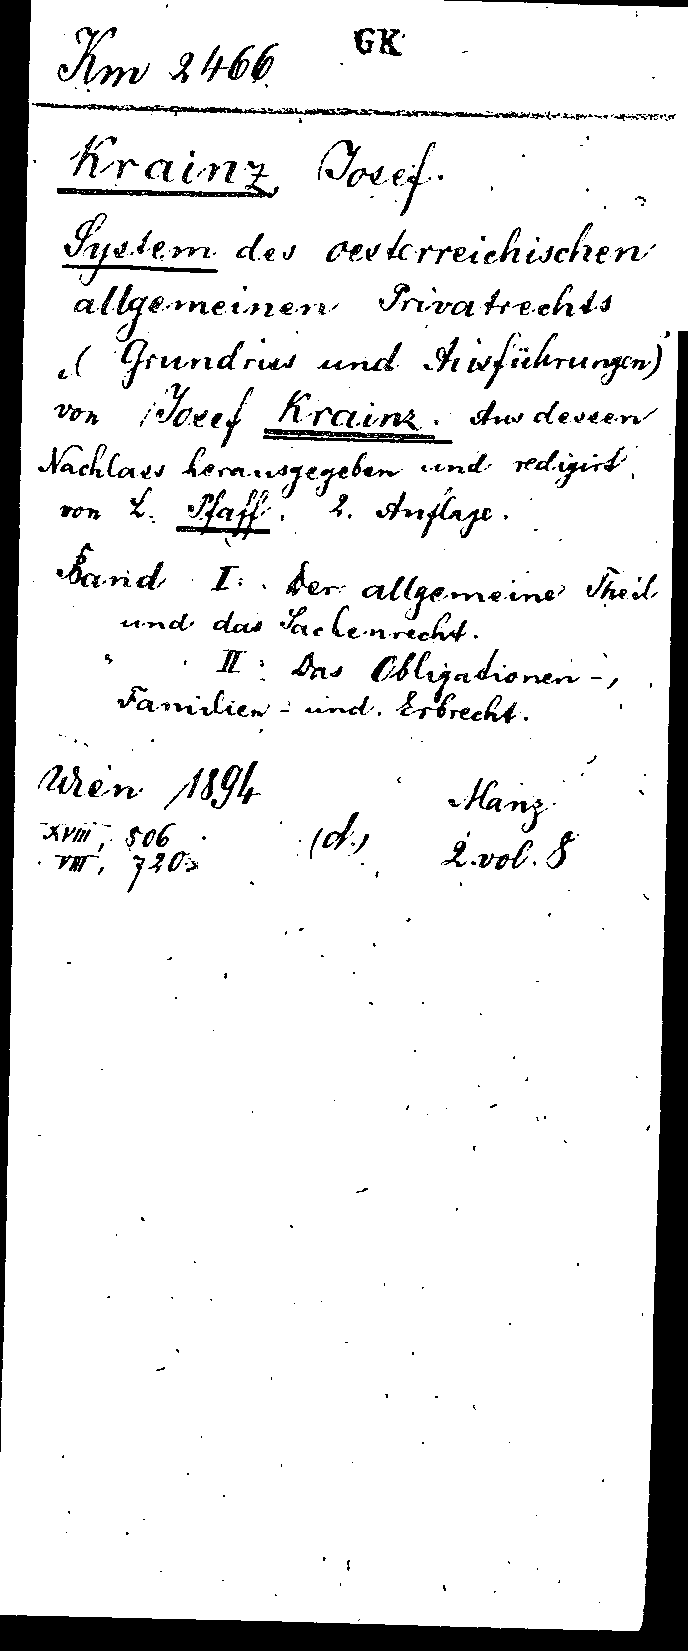 Km 2466 GK
Krainz Josef.
System des oesterreichischen
allgemeinen Privatrechts
( Grundriss und Ausführungen)
von Josef Krainz. Aus dessen
Nachlass herausgegeben und redigirt
von L. Pfaff. 2. Auflage.
Band I: Der allgemeine Theil
und das Sachenrecht.
" II: Das Obligationen-,
Familien- und Erbrecht.
Wien 1894 Manz
XVIII, 506 (d.) 2.vol. 8
VIII, 720